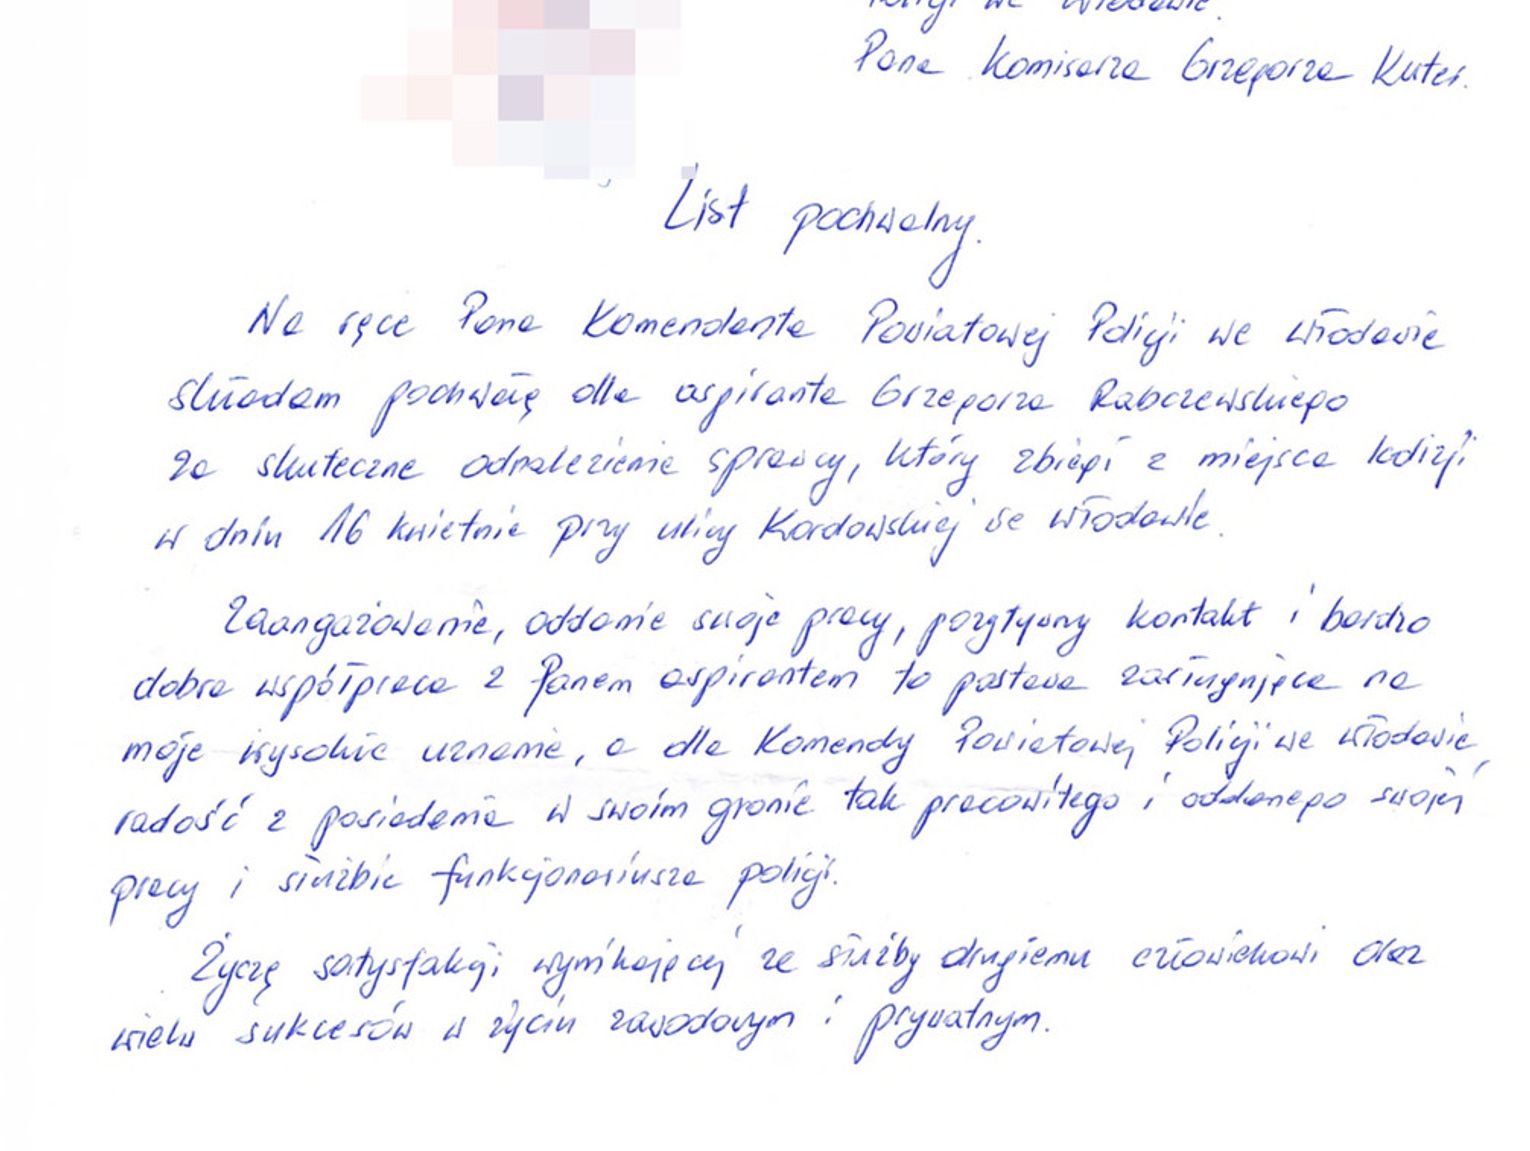 Policji we Włodawie.
Pana Komisarza Grzegorza Kuter.
List pochwalny.
Na ręce Pana Komendanta Powiatowej Policji we Włodawie
składam pochwałę dla aspiranta Grzegorza Rabczewskiego
za skuteczne odnalezienie sprawcy, który zbiegł z miejsca kolizji
w dniu 16 kwietnia przy ulicy Korolowskiej we Włodawie.
Zaangażowanie, oddanie swoje pracy, pozytywny kontakt i bardzo
dobra współpraca z Panem aspirantem to postawa zasługująca na
moje wysokie uznanie, a dla Komendy Powiatowej Policji we Włodawie,
radość z posiadania w swoim gronie tak pracowitego i oddanego swojej
pracy i służbie funkcjonariusza policji.
Życzę satysfakcji wynikającej ze służby drugiemu człowiekowi oraz
wielu sukcesów w życiu zawodowym i prywatnym.